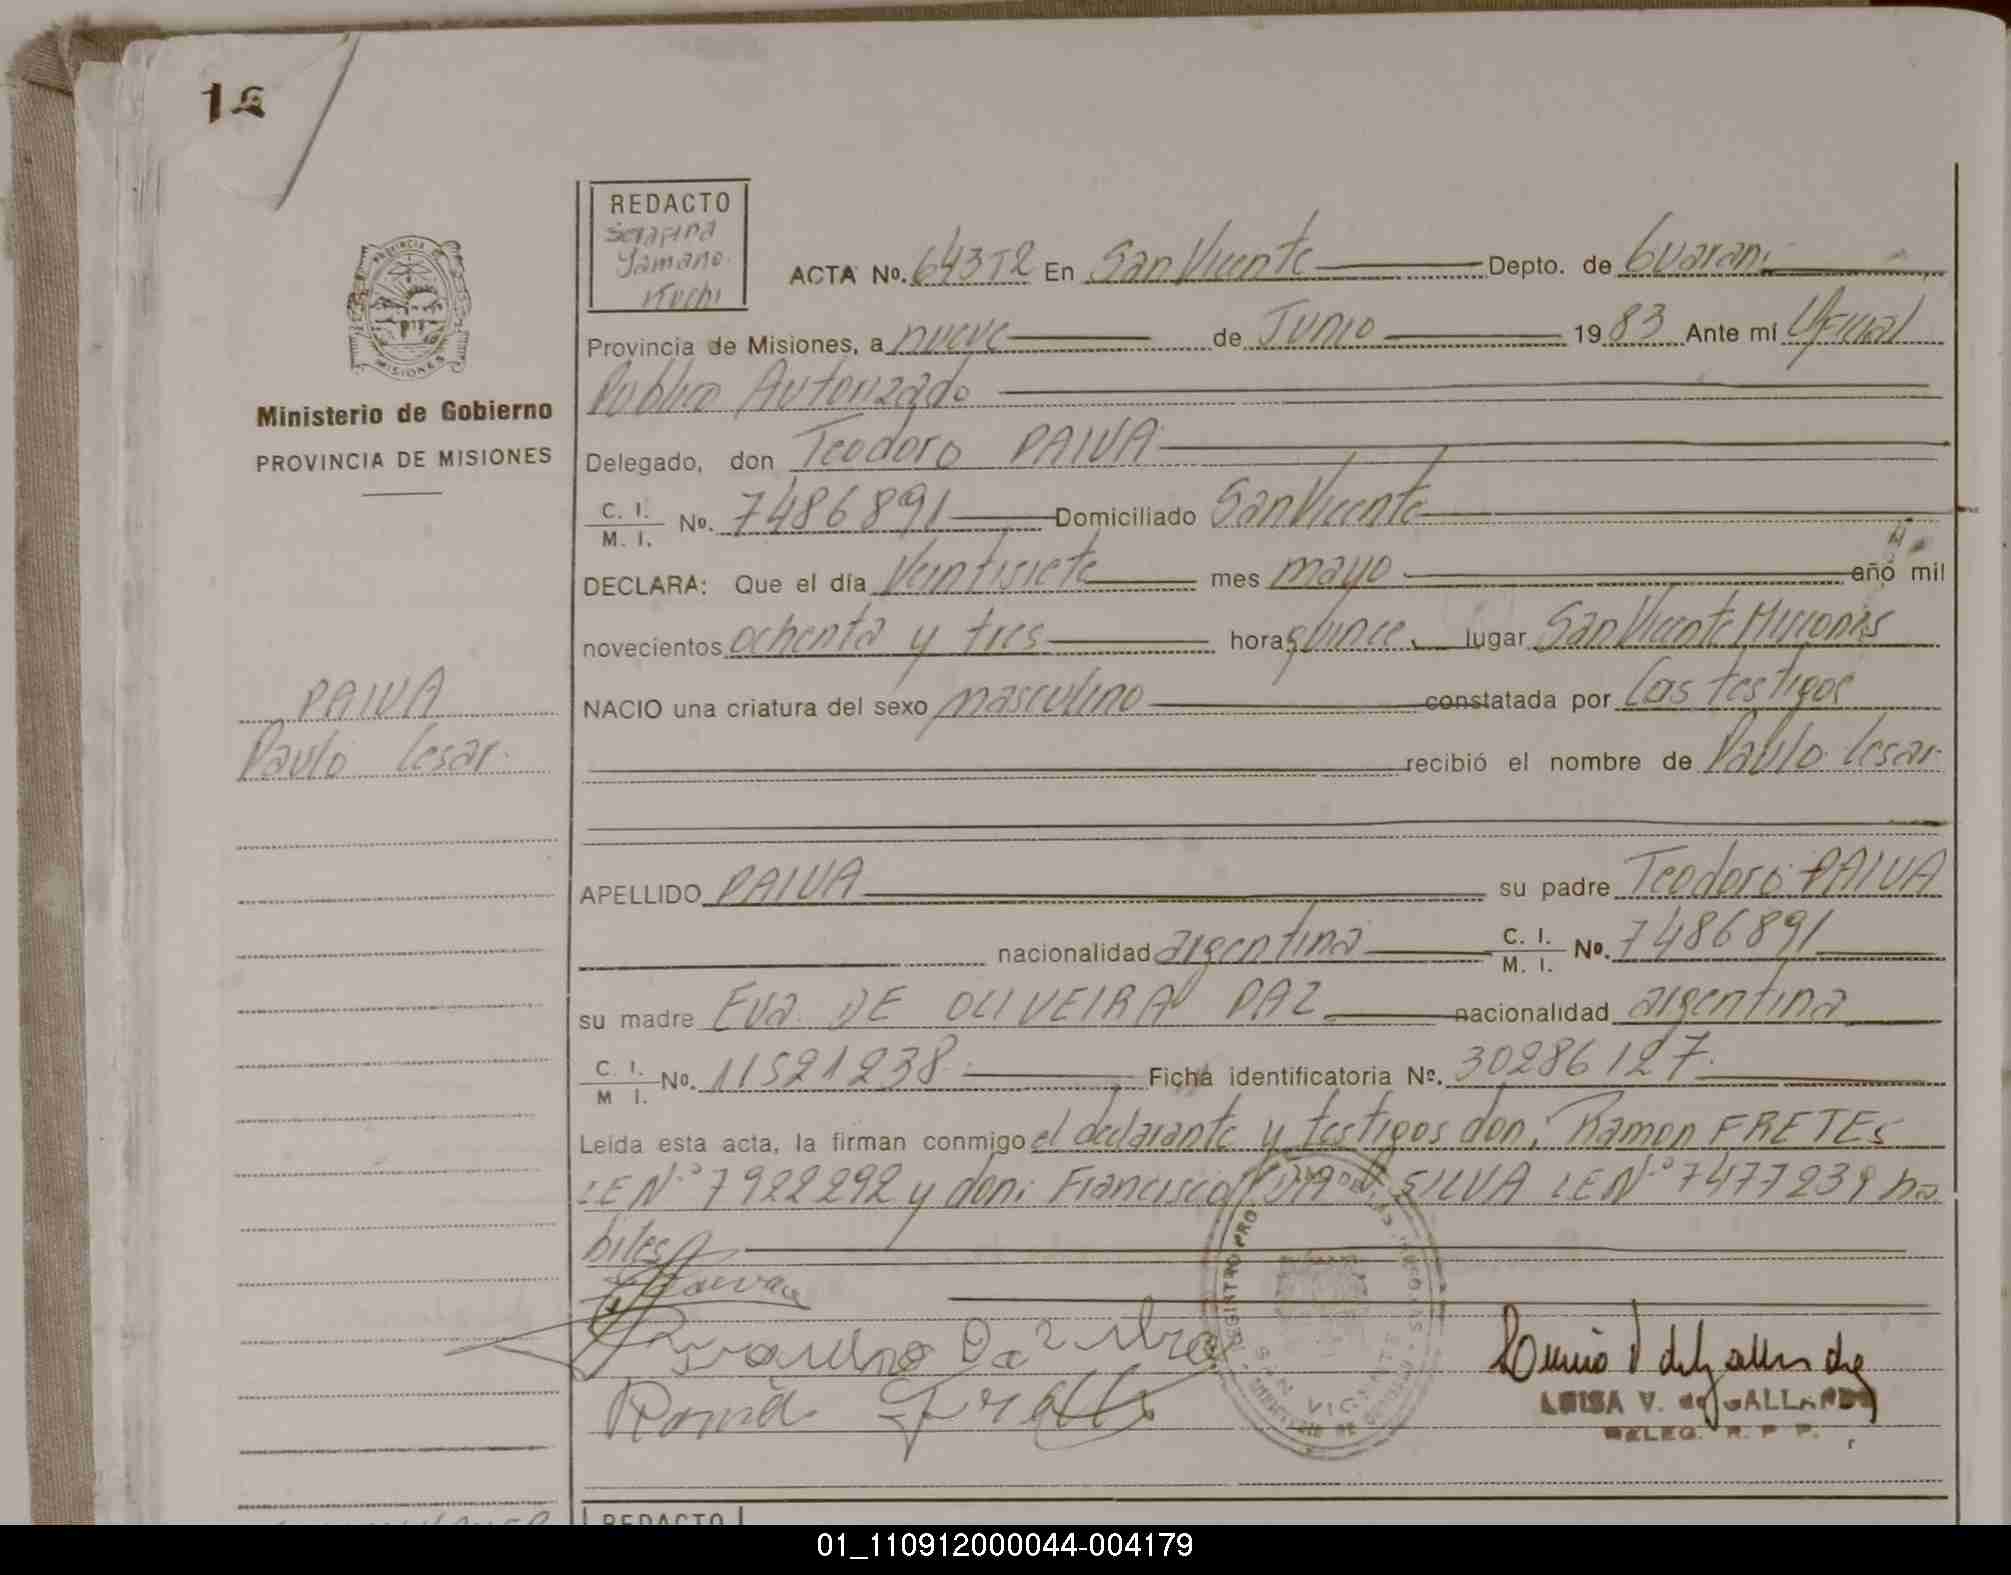 REDACTO
Serafina
Yamano
Kuchi
ACTA Nº. 643T2 En San Vicente Depto. de Guarani
Provincia de Misiones, a nueve de Junio 1983 Ante mí Oficial
Publico Autorizado
Delegado, don Teodoro PAIVA
C. I. M. I. Nº. 7486891 Domiciliado San Vicente
DECLARA: Que el día Veintisiete mes mayo año mil
novecientos ochenta y tres hora quince lugar San Vicente Misiones
NACIO una criatura del sexo masculino constatada por Los testigos
recibió el nombre de Paulo Cesar
APELLIDO PAIVA su padre Teodoro PAIVA
nacionalidad argentina C. I. M. I. Nº. 7486891
su madre Eva DE OLIVEIRA PAZ nacionalidad argentina
C. I. M I. Nº. 11521238 Ficha identificatoria Nº. 30286127
Leída esta acta, la firman conmigo el declarante y testigos don: Ramon FRETES
LE Nº 7922292 y don: Francisco DA SILVA LE Nº 7477239 ha
biles
PROVINCIA DE MISIONES
Ministerio de Gobierno
PROVINCIA DE MISIONES
PAIVA
Paulo Cesar
SAN VICENTE
LUISA V. de GALLARDO
DELEG. R. P. P.
REDACTO
01_110912000044-004179